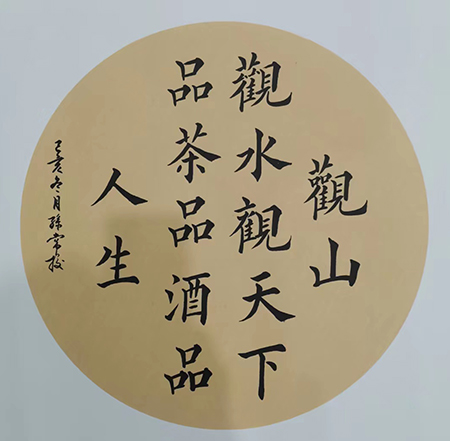 觀山
觀水觀天下
品茶品酒品
人生
己亥冬月孫常敏